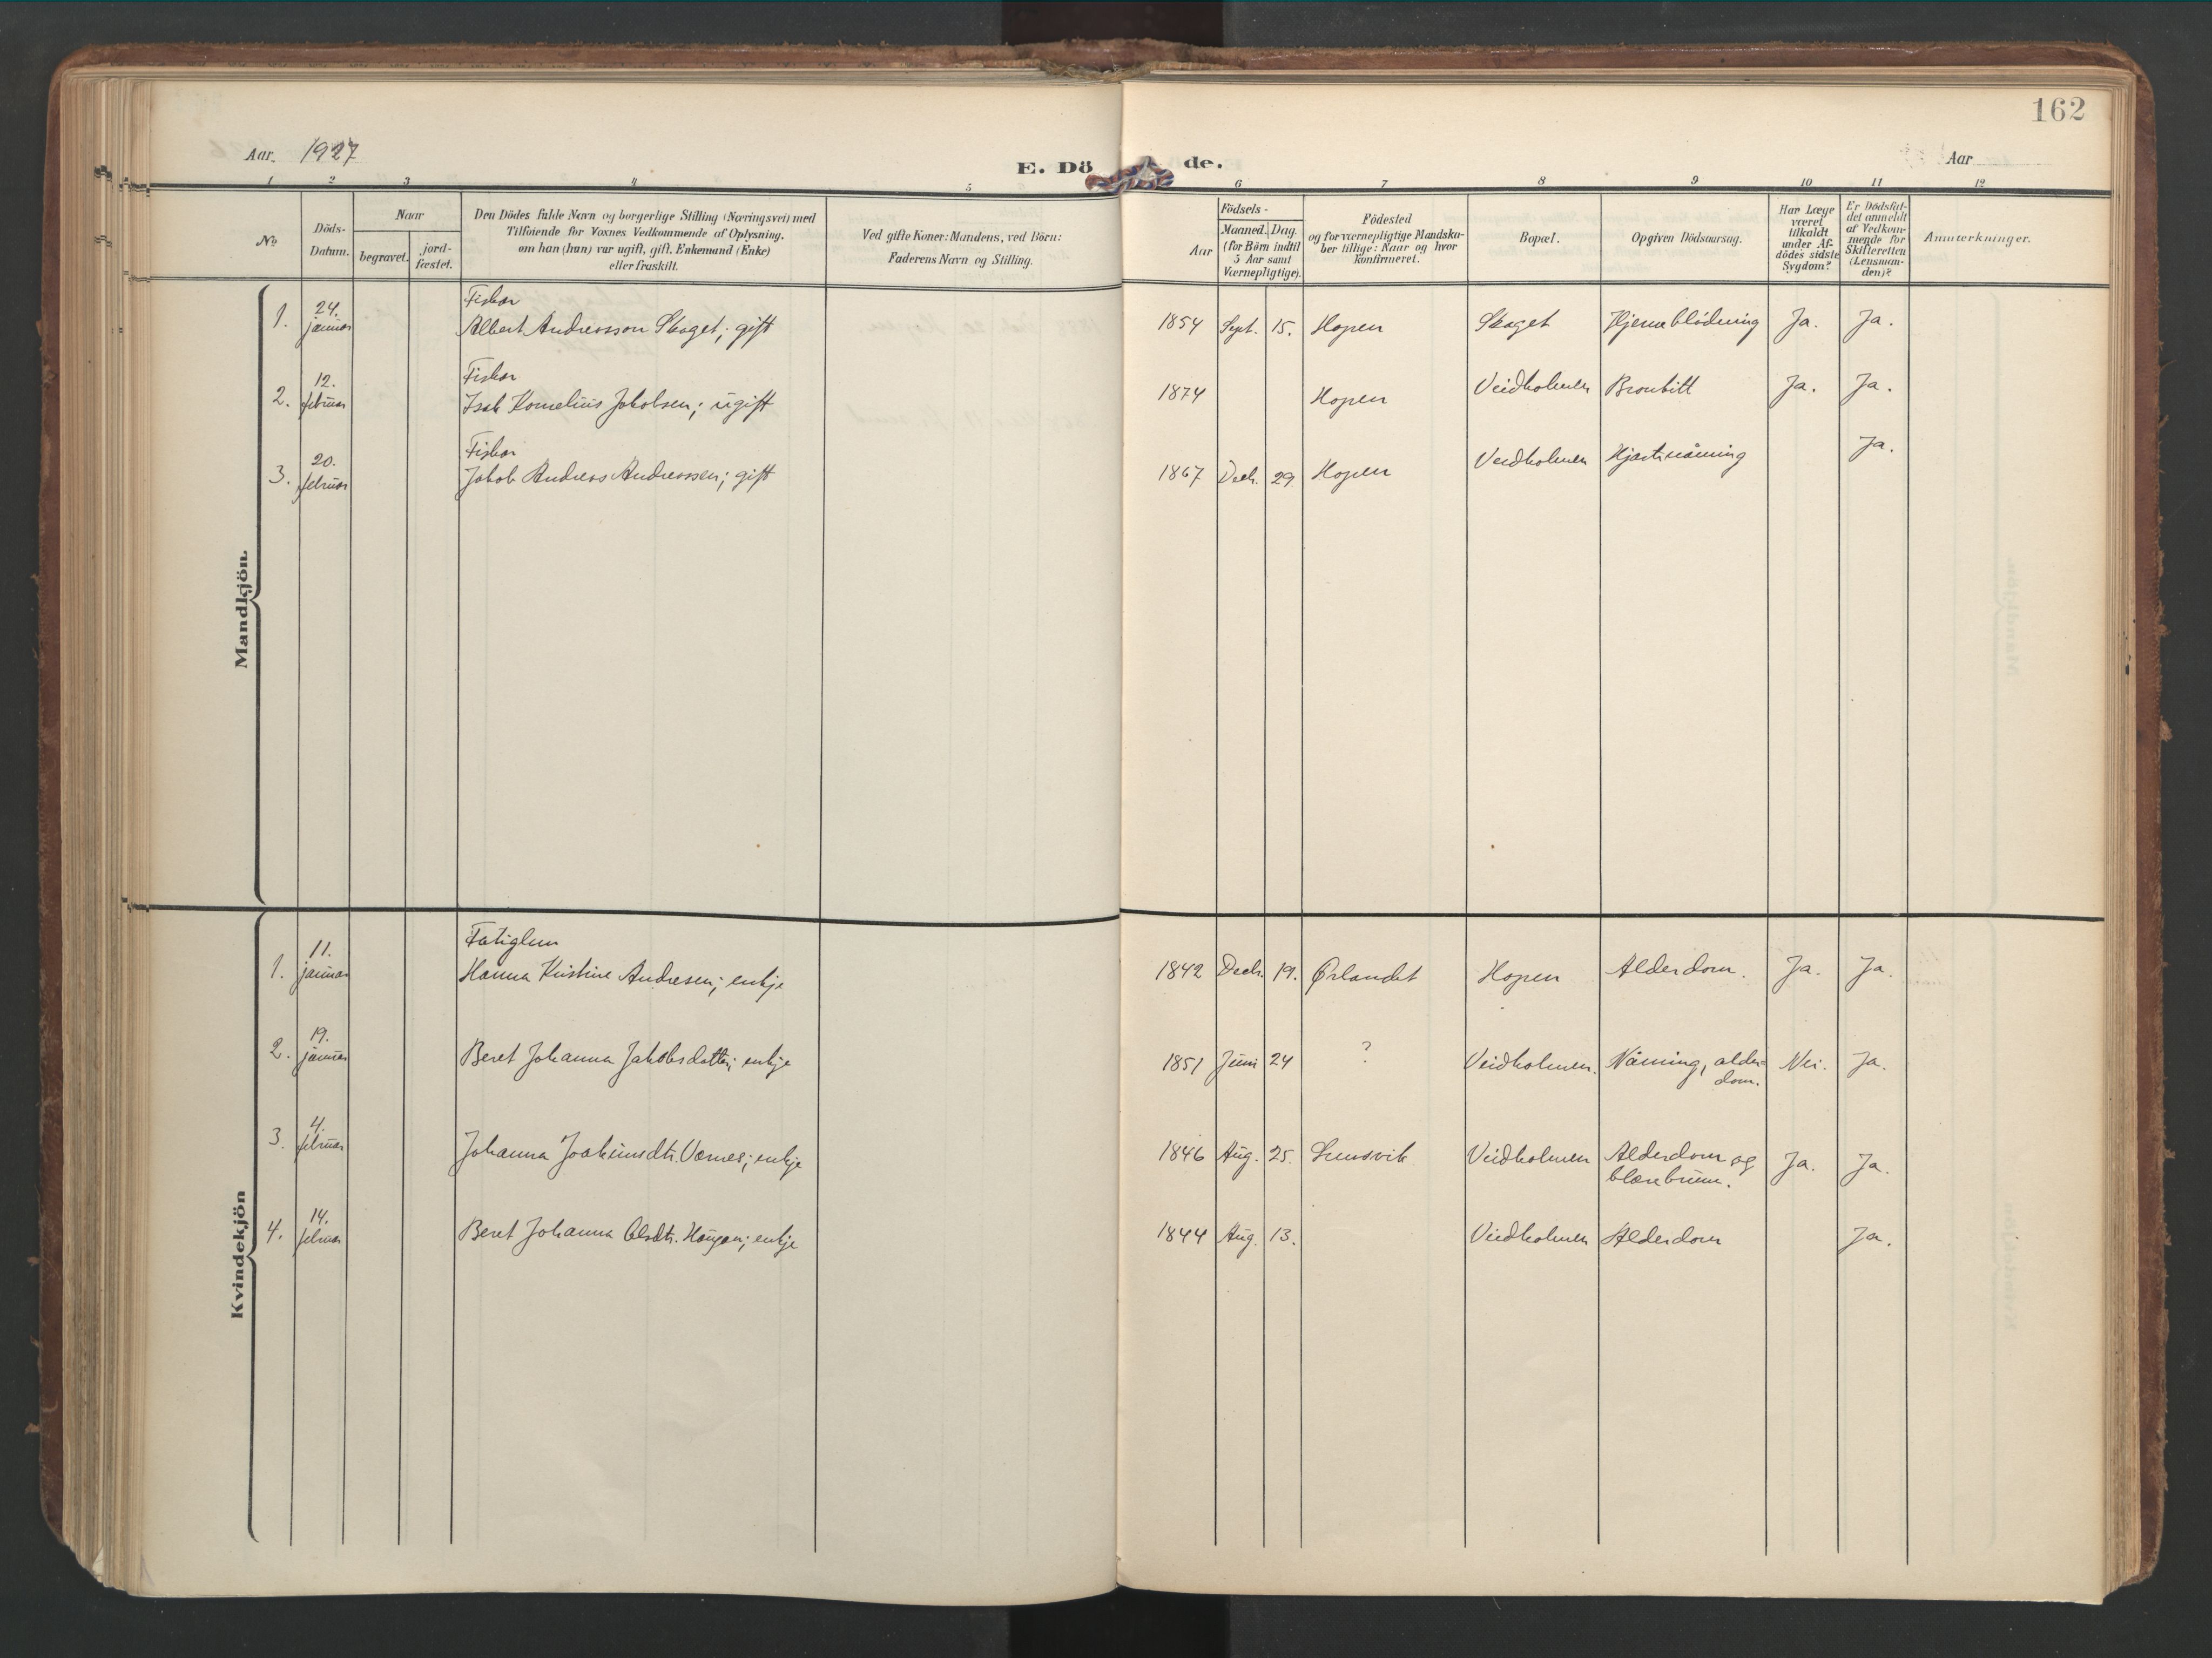 162
Aar. 1927
E. Dö de.
Aar
1 2 3 4 5 6 7 8 9 10 11 12
No
Döds-
Datum.
Naar
begravet.
jord-
fæstet.
Den Dödes fulde Navn og borgerlige Stilling (Næringsvei) med
Tilföiende for Voxnes Vedkommende af Oplysning,
om han (hun) var ugift, gift, Enkemand (Enke)
eller fraskilt.
Ved gifte Koner: Mandens, ved Börn:
Faderens Navn og Stilling.
Födsels-
Aar
Maaned. Dag.
(for Börn indtil
5 Aar samt
Værnepligtige).
Födested
og for værnepligtige Mandska-
ber tillige: Naar og hvor
konfirmeret.
Bopæl.
Opgiven Dödsaarsag.
Har Læge
været
tilkaldt
under Af-
dödes sidste
Sygdom?
Er Dödsfal-
det anmeldt
af Vedkom-
mende for
Skifteretten
(Lensman-
den)?
Anmærkninger.
Mandkjön.
24. Fisker
1. januar Albert Andreassen Skaget; gift 1854 Sept. 15. Hopen Skaget Hjerneblödning Ja. Ja.
12. Fisker
2. februar Isak Kornelius Jakobsen; ugift 1874 Hopen Veidholmen Bronkitt Ja. Ja.
20. Fisker
3. februar Jakob Andreas Andreassen; gift 1867 Decb. 29. Hopen Veidholmen Hjertelamming Ja.
Kvindekjön
11. Fatiglem
1. januar Hanna Kristine Andresen; enkje 1842 Decb. 19. Ørlandet Hopen Alderdom. Ja. Ja.
19.
2. januar Beret Johanna Jakobsdatter; enkje 1851 Juni 24 ? Veidholmen. alder=
dom. Nei. Ja.
4.
3. februar Johanna Joakimsdtr. Værnes; enkje 1846 Aug. 25. Veidholmen Alderdom og Ja. Ja.
14.
4. februar Beret Johanna Olsdtr. Haugan; enkje 1844 Aug. 13. Veidholmen Alderdom Ja.